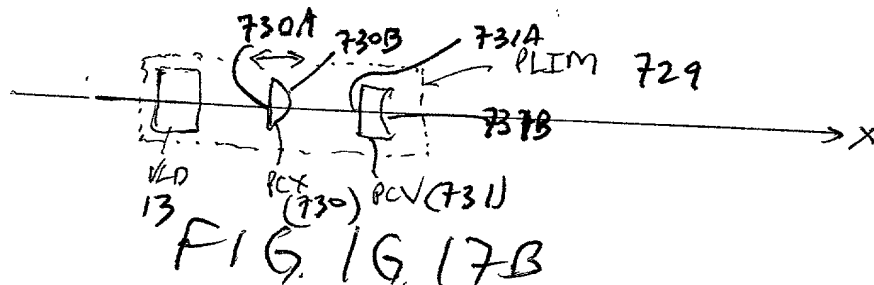 730A 730B 731A
PLIM 729
731B
X
VLD
13
PCX
(730)
PCV (731)
FIG. 1G17B